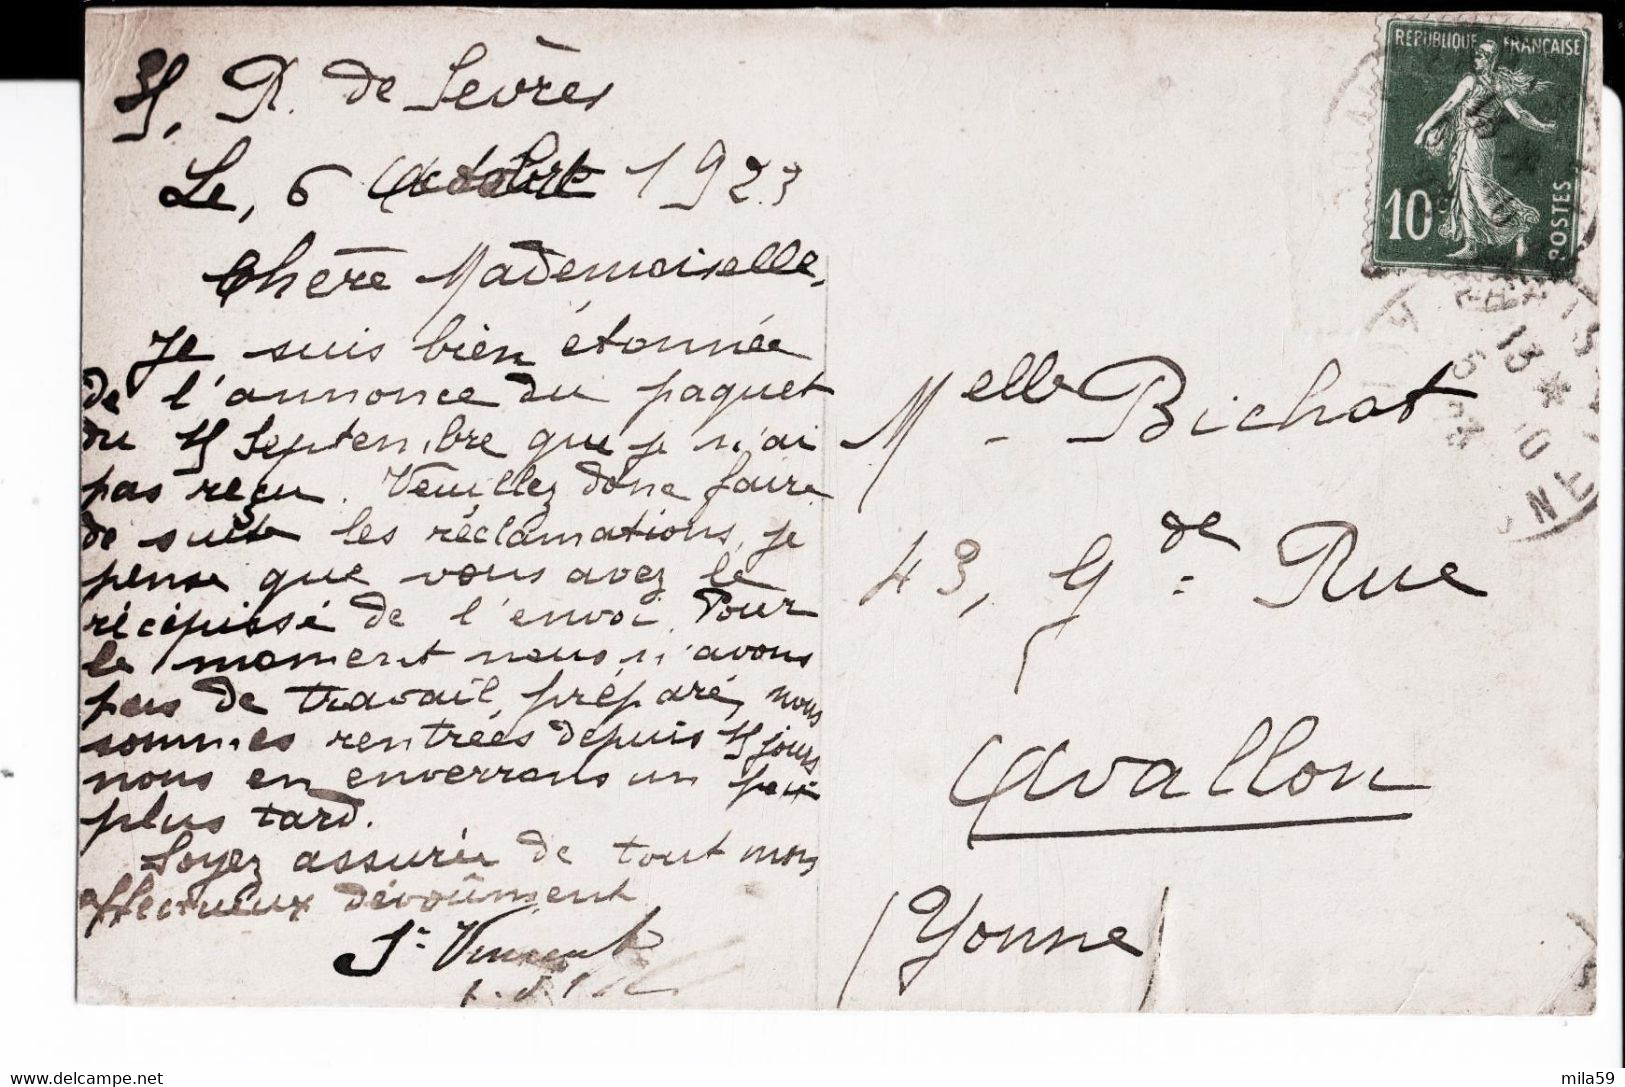 R. de Sèvres
Le, 6 Octobre 1923
Chère Mademoiselle,
Je suis bien étonnée
de l'annonce du paquet
du 15 Septembre que je n'ai
pas reçu. Veuillez donc faire
de suite les réclamations, je
pense que vous avez le
récépissé de l'envoi. Pour
le moment nous n'avons
pas de travail préparé, nous
sommes rentrées depuis 15 jours
nous en enverrons un peu
plus tard.
Soyez assurée de tout mon
affectueux dévoûment
Sr Vincent
RÉPUBLIQUE FRANÇAISE
10c
POSTES
Melle Bichat
43, Gde Rue
Avallon
(Yonne)
delcampe.net
mila59